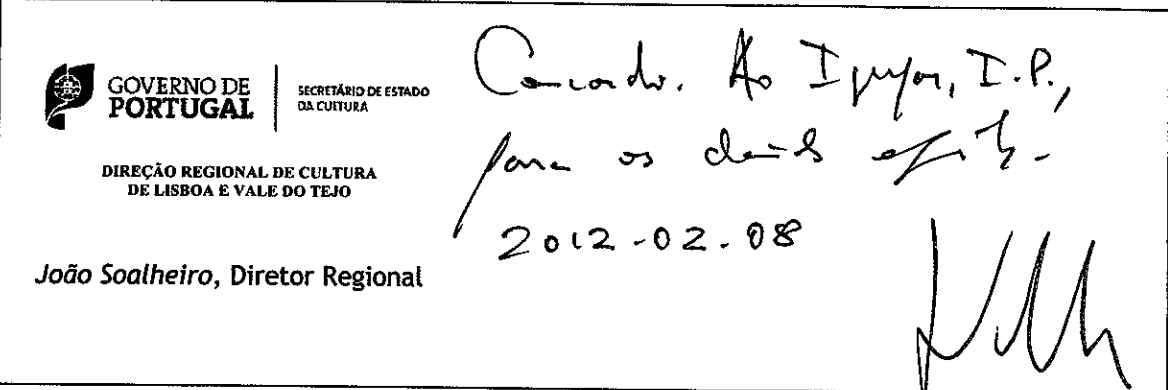 GOVERNO DE
PORTUGAL
SECRETÁRIO DE ESTADO
DA CULTURA
DIREÇÃO REGIONAL DE CULTURA
DE LISBOA E VALE DO TEJO
João Soalheiro, Diretor Regional
Concordo. Ao Igespar, I.P.,
para os devidos efeitos.
2012-02-08